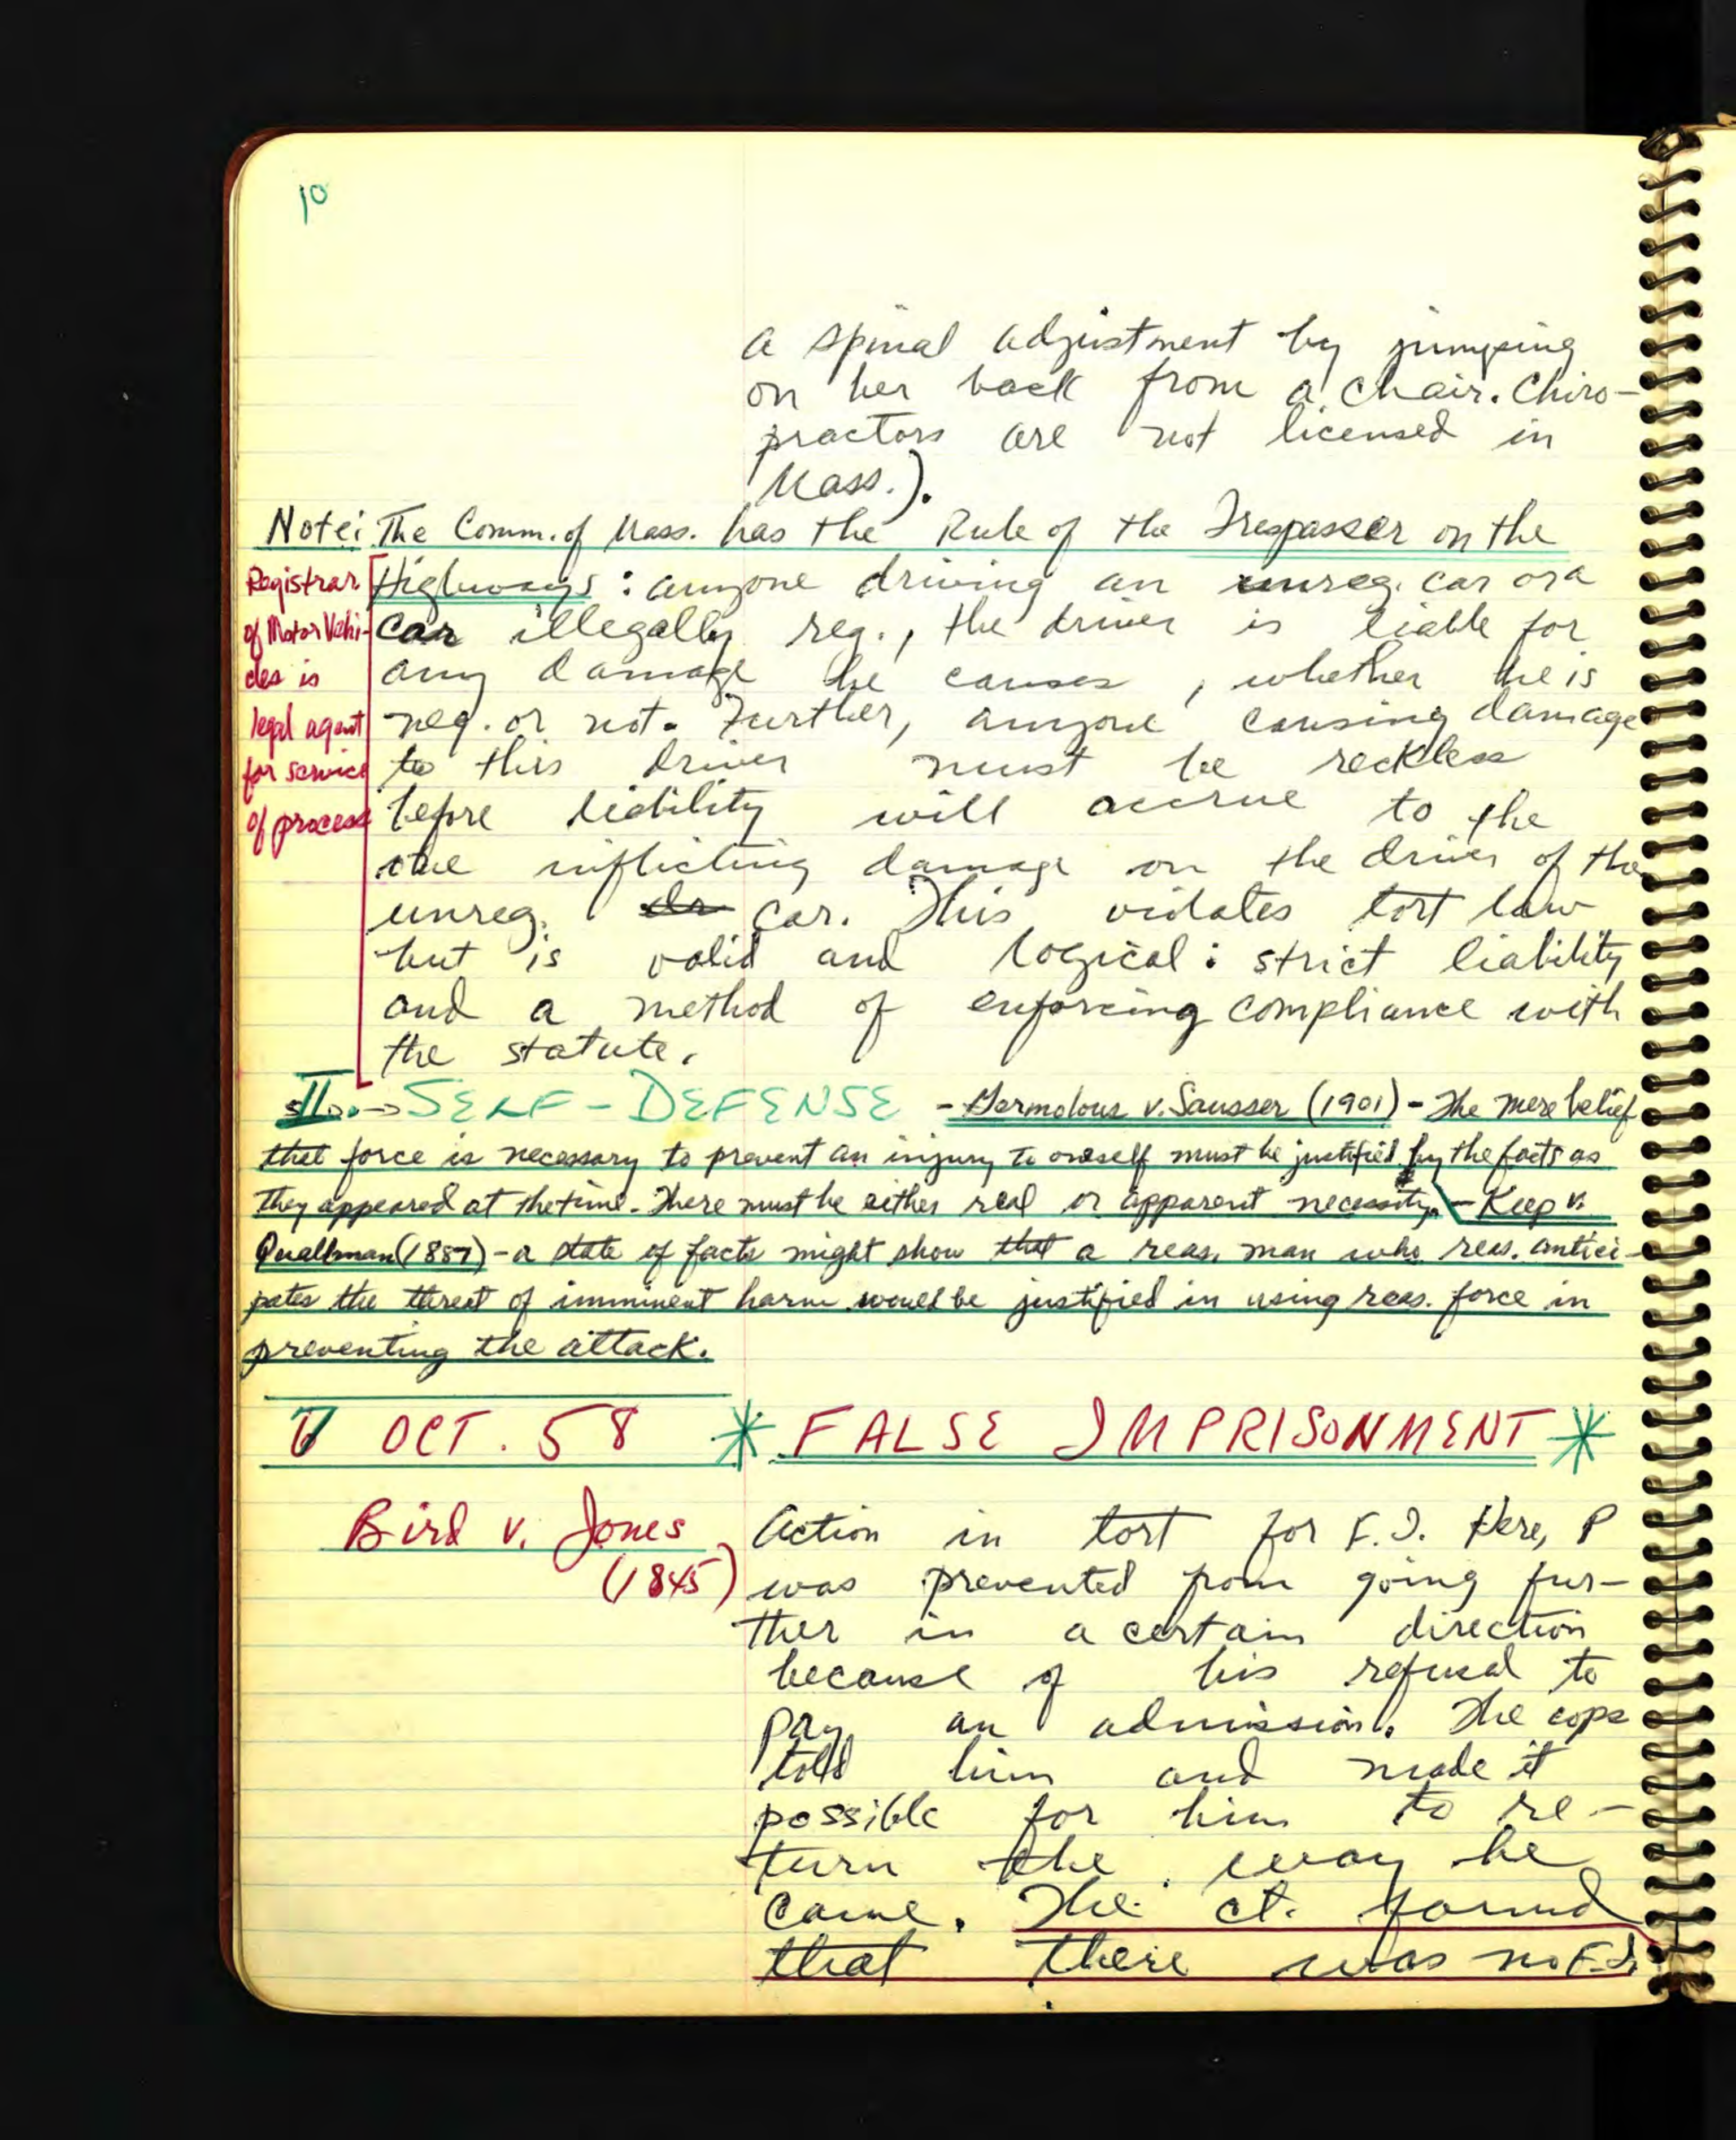 10
a spinal adjustment by jumping
on her back from a chair. Chiro-
practors are not licensed in
Mass.).
Note: The Comm. of Mass. has the Rule of the Trespasser on the
Highways: anyone driving an unreg. car or a
car illegally reg., the driver is liable for
any damage he causes, whether he is
neg. or not. Further, anyone causing damage
to this driver must be reckless
before liability will accrue to the
one inflicting damage on the driver of the
unreg. dr car. This violates tort law
but is valid and logical: strict liability
and a method of enforcing compliance with
the statute.
Registrar
of Motor Vehi-
cles is
legal agent
for service
of process
II. → SELF-DEFENSE - v. Sausser (1901) - The mere belief
that force is necessary to prevent an injury to oneself must be justified by the facts as
they appeared at the time. There must be either real or apparent necessity. - Keep v.
Quallman (1887) - a state of facts might show that a reas. man who reas. antici-
pates the threat of imminent harm would be justified in using reas. force in
preventing the attack.
OCT. 58 * FALSE IMPRISONMENT *
Bird v. Jones
(1845)
Action in tort for F.I. Here, P
was prevented from going fur-
ther in a certain direction
because of his refusal to
pay an admission. The cops
told him and made it
possible for him to re-
turn the way he
came. The ct. found
that there was no F.I.